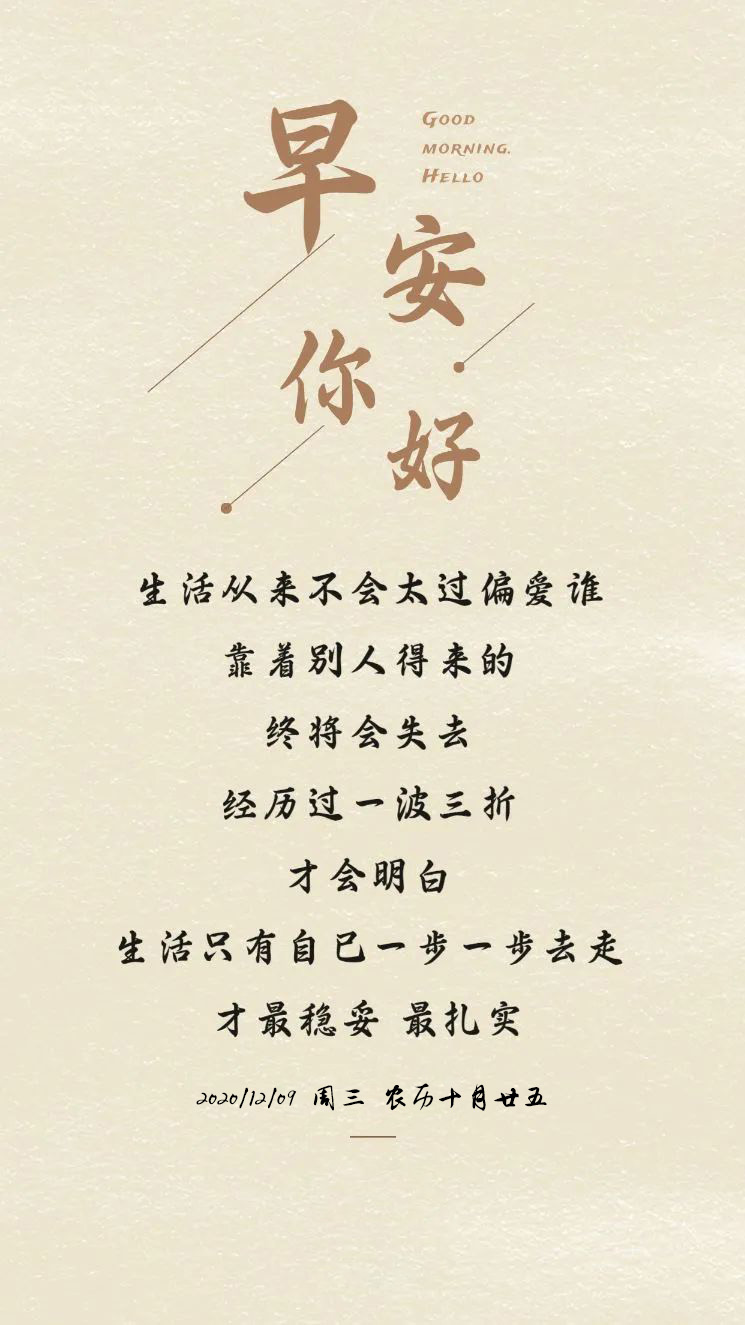 早安你好
GOOD
MORNING.
HELLO
生活从来不会太过偏爱谁
靠着别人得来的
终将会失去
经历过一波三折
才会明白
生活只有自已一步一步去走
才最稳妥 最扎实
2020/12/09 周三 农历十月廿五